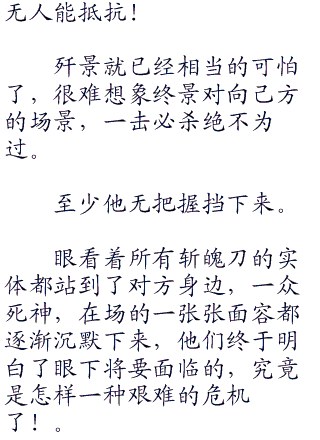 无人能抵抗！
歼景就已经相当的可怕
了，很难想象终景对向己方
的场景，一击必杀绝不为
过。
至少他无把握挡下来。
眼看着所有斩魄刀的实
体都站到了对方身边，一众
死神，在场的一张张面容都
逐渐沉默下来，他们终于明
白了眼下将要面临的，究竟
是怎样一种艰难的危机
了！。